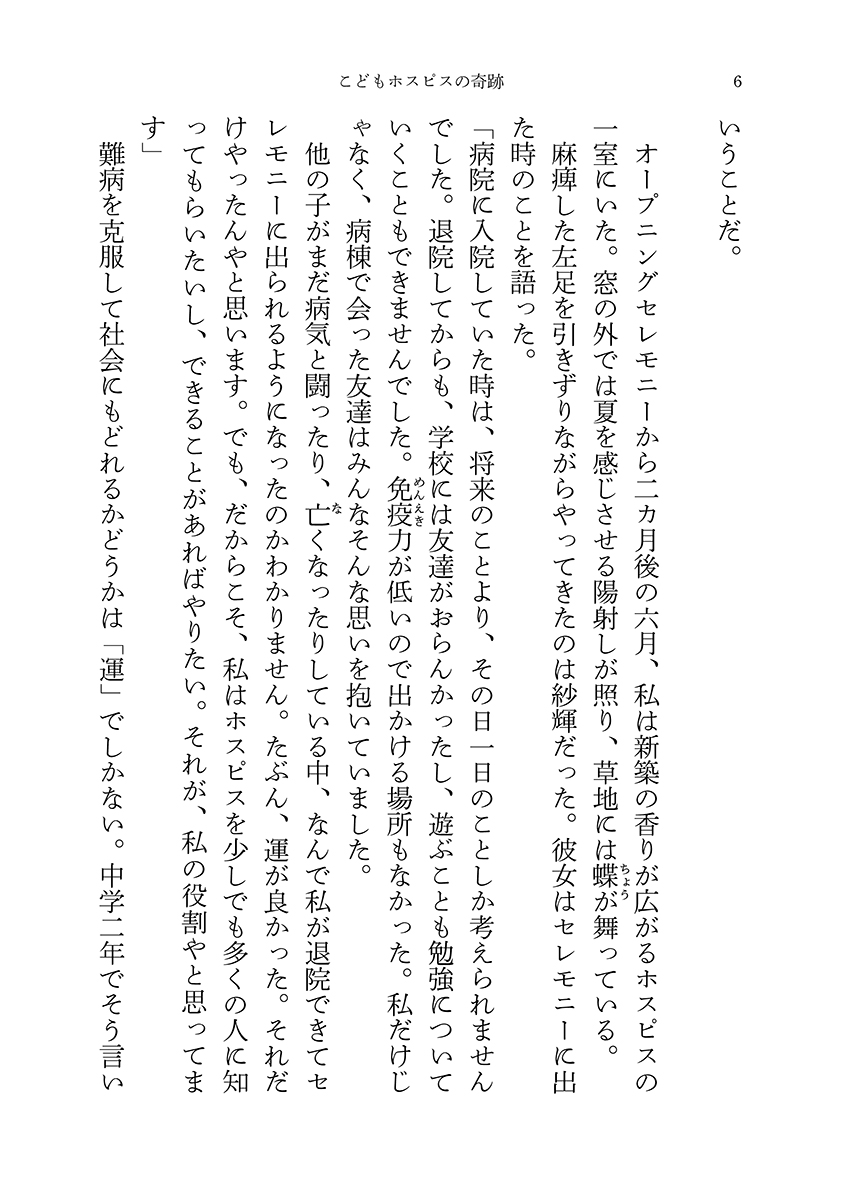 こどもホスピスの奇跡
6
いうことだ。
オープニングセレモニーから二カ月後の六月、私は新築の香りが広がるホスピスの
一室にいた。窓の外では夏を感じさせる陽射しが照り、草地には蝶が舞っている。
ちょう
麻痺した左足を引きずりながらやってきたのは紗輝だった。彼女はセレモニーに出
た時のことを語った。
「病院に入院していた時は、将来のことより、その日一日のことしか考えられません
でした。退院してからも、学校には友達がおらんかったし、遊ぶことも勉強について
いくこともできませんでした。免疫力が低いので出かける場所もなかった。私だけじ
めんえき
ゃなく、病棟で会った友達はみんなそんな思いを抱いていました。
他の子がまだ病気と闘ったり、亡くなったりしている中、なんで私が退院できてセ
な
レモニーに出られるようになったのかわかりません。たぶん、運が良かった。それだ
けやったんやと思います。でも、だからこそ、私はホスピスを少しでも多くの人に知
ってもらいたいし、できることがあればやりたい。それが、私の役割やと思ってま
す」
難病を克服して社会にもどれるかどうかは「運」でしかない。中学二年でそう言い